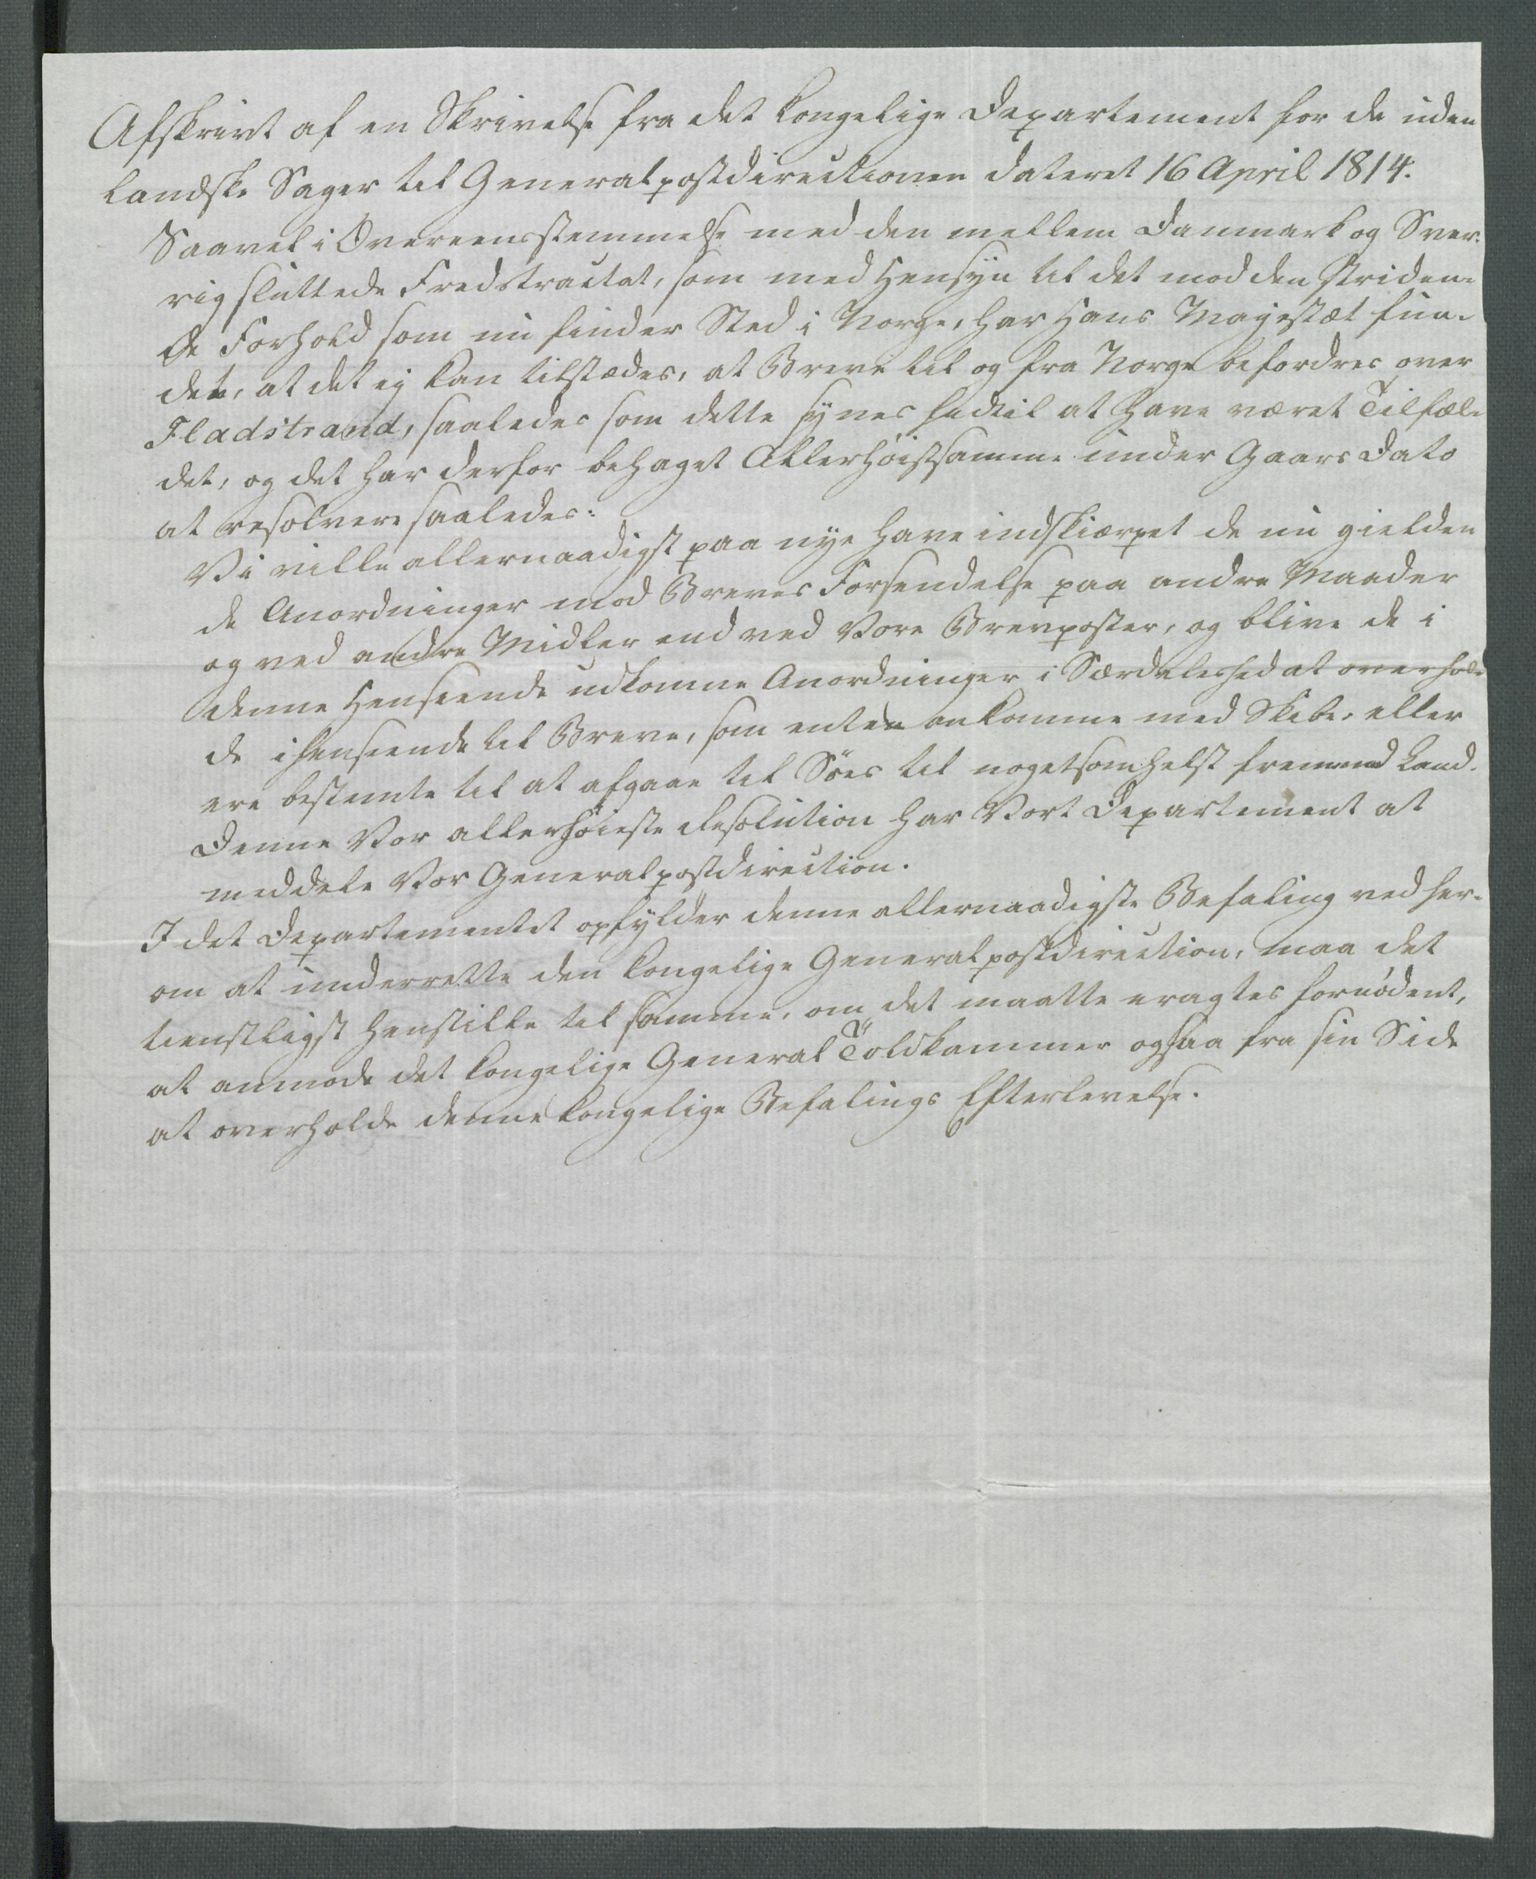 Afskrivt af en Skrivelse fra det kongelige Departement for de uden
landske Sager til Generalpostdirectionen dateret 16 April 1814.
Saavel i Overeensstemmelse med den mellem Danmark og Sver-
rig sluttede Fredstractat, som med Hensyn til det mod den striden-
de Forhold som nu finder Sted i Norge, har Hans Majestæt fun-
det, at det ej kan tilstædes, at Breve til og fra Norge befordres over
Fladstrand, saaledes som dette synes hidtil at have været Tilfæl-
det, og det har derfor behaget Allerhöistsamme under Gaars Dato
at resolvere saaledes:
Vi ville allernaadigst paa nye have indskiærpet de nu gielden
de Anordninger mod Breves Forsendelse paa andre Maader
og ved andre Midler end ved Vore Brevposter, og blive de i
denne Henseende udkomne Anordninger i Særdeleshed at overhol-
de i Henseende til Breve, som enten ankomme med Skibe, eller
ere bestemte til at afgaae til Söes til nogetsomhelst fremmed Land.
Denne Vor allerhöieste Resolution har Vort Departement at
meddele Vor Generalpostdirection.
I det Departementet opfylder denne allernaadigste Befaling ved her-
om at underrette den kongelige Generalpostdirection, maa det
tienstligst henstille til samme, om det maatte eragtes fornödent,
at anmode det kongelige General Toldkammer ogsaa fra sin Side
at overholde denne kongelige Befalings Efterlevelse.